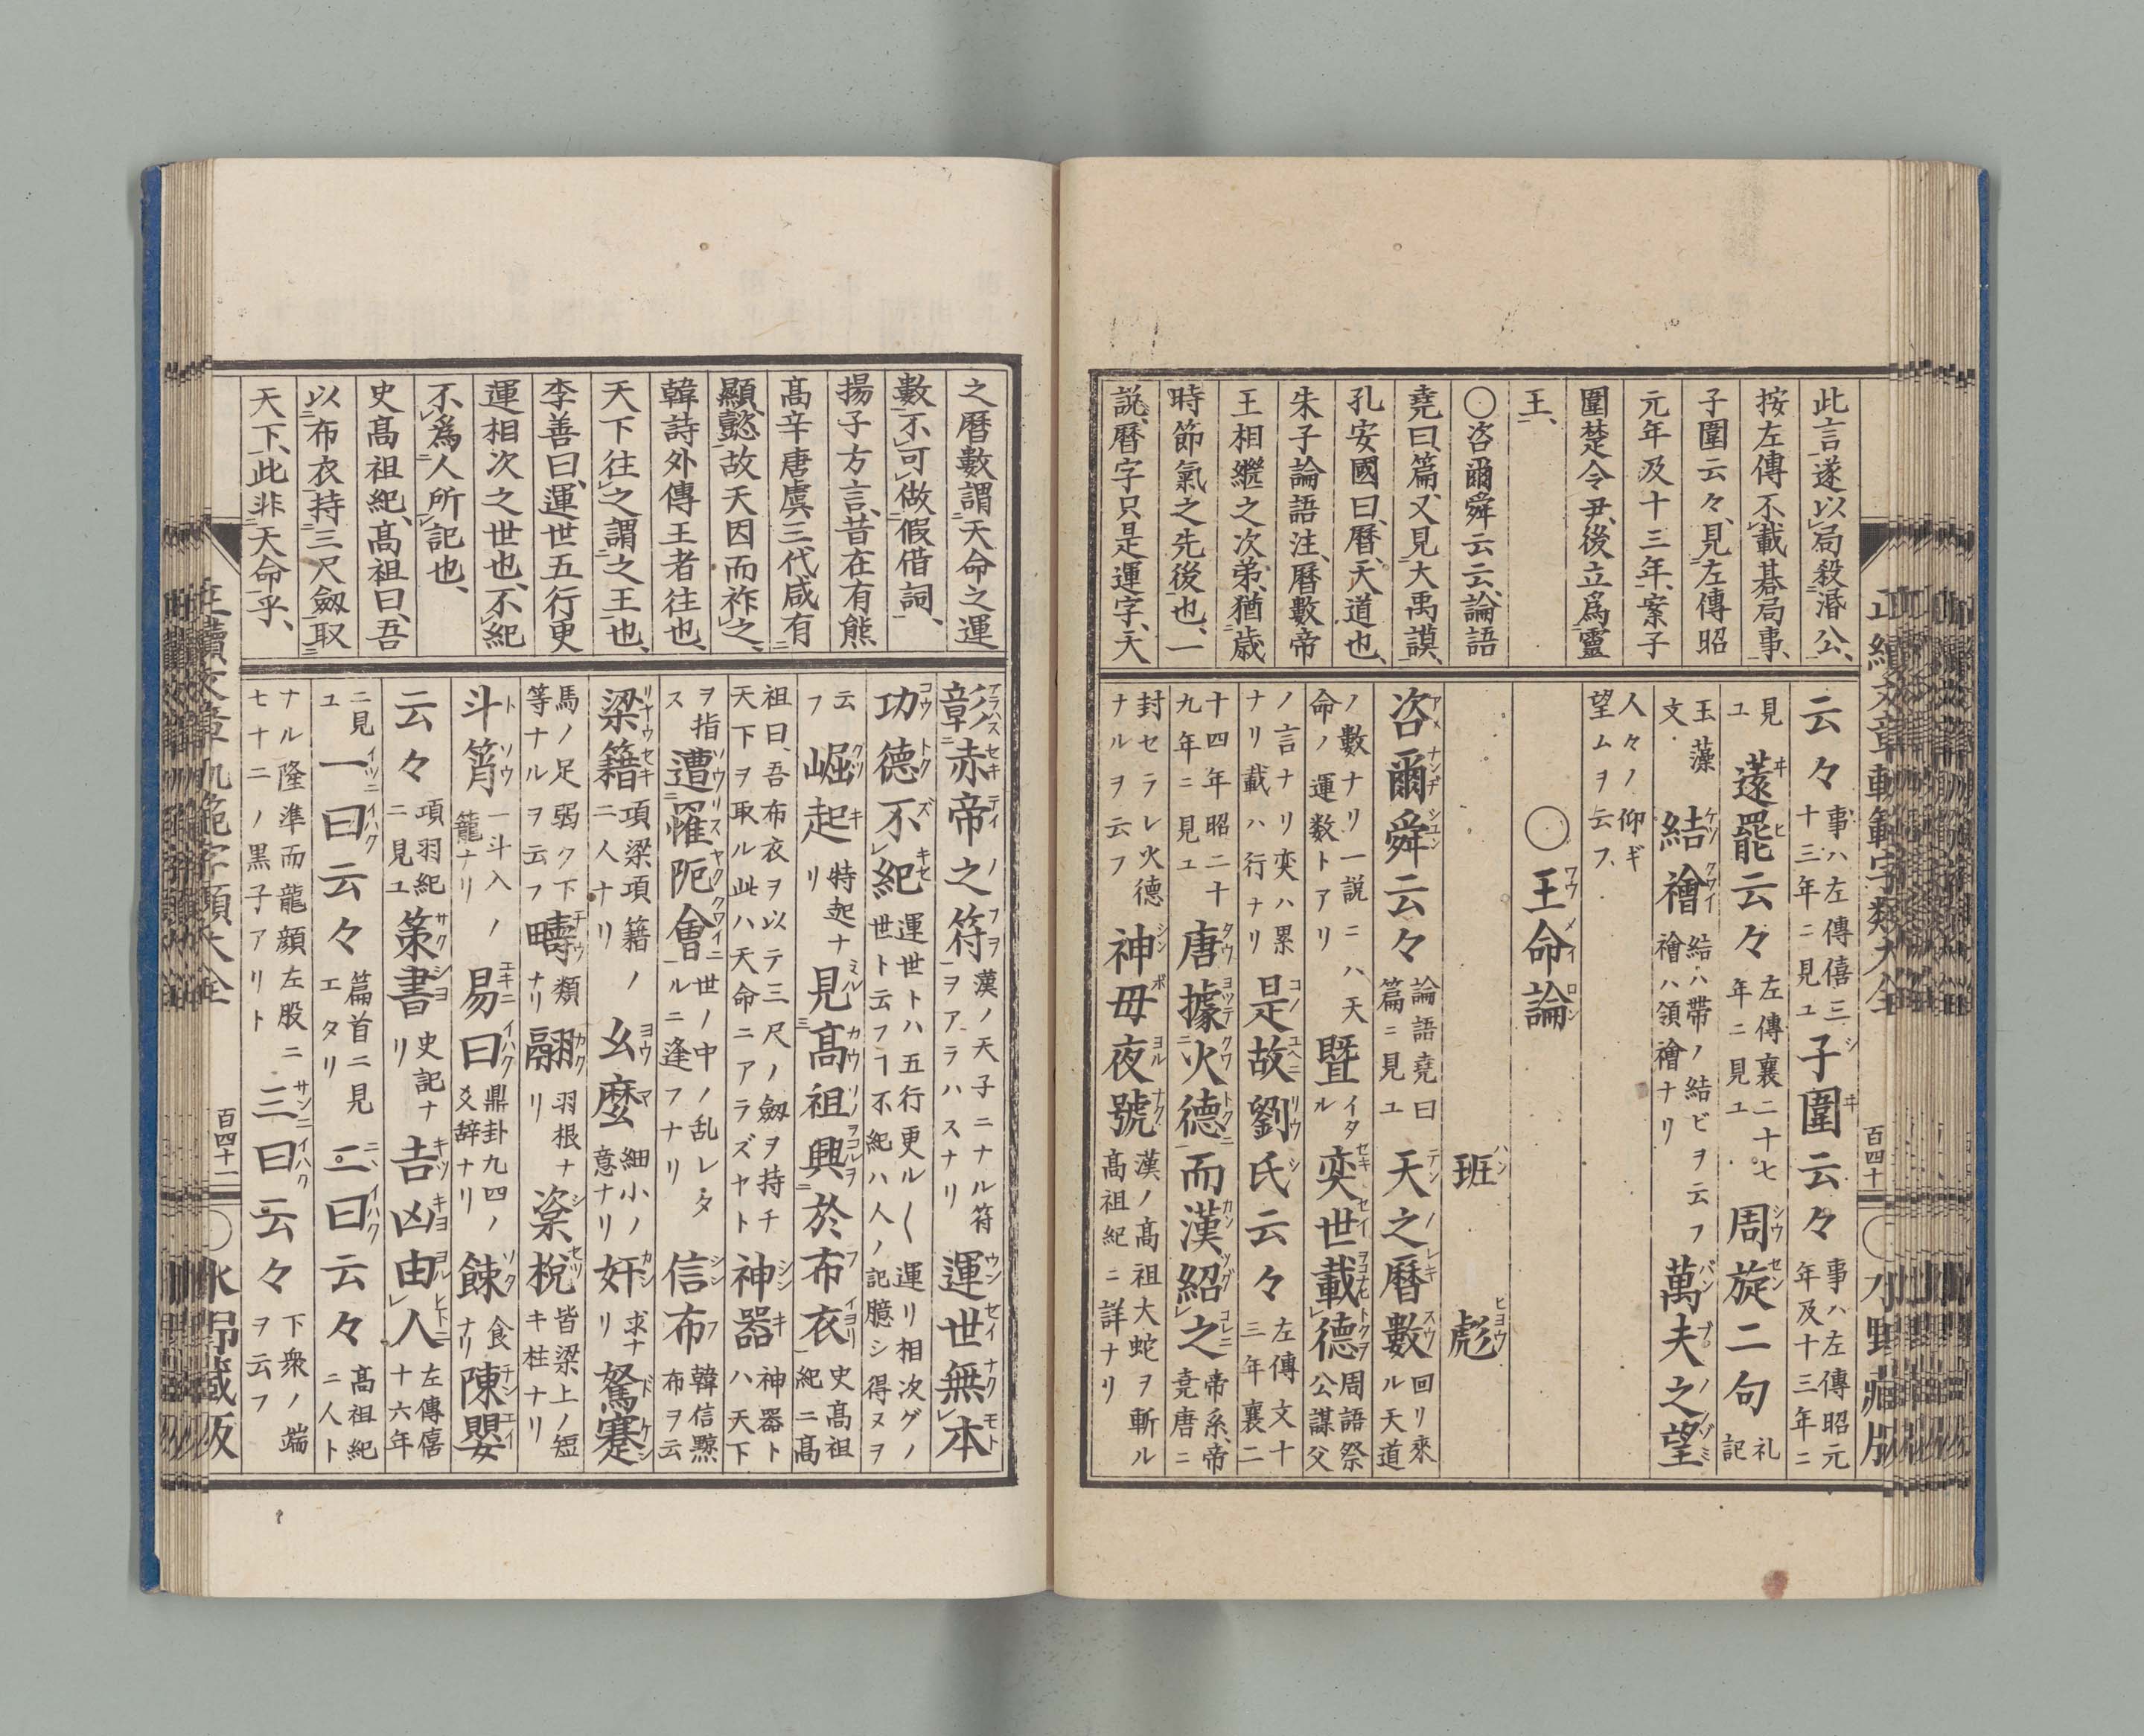 此言遂以局殺湣公、
按左傳不載碁局事、
子圍云々、見左傳昭
元年及十三年、案子
圍楚令尹、後立爲靈
王、
〇咨爾舜云云、論語
堯曰篇、又見大禹謨、
孔安國曰、曆、天道也、
朱子論語注、曆數帝
王相繼之次弟、猶歲
時節氣之先後也、一
說、曆字只是運字、天
云々 事ハ左傳僖三十三年ニ見ユ 子圍云々 事ハ左傳昭元年及十三年ニ
見ユ 薳罷云々 左傳襄二十七年ニ見ユ 周旋二句 礼記
玉藻文 結禬 結ハ帶ノ結ビヲ云フ禬ハ領禬ナリ 萬夫之望
人々ノ仰ギ望ムヲ云フ
〇王命論
班彪
咨爾舜云々 論語堯曰篇ニ見ユ 天之曆數 回リ來ル天道
ノ數ナリ一説ニハ天命ノ運数トアリ 曁 イタル 奕世載德 周語祭公謀父
ノ言ナリ奕ハ累ナリ載ハ行ナリ 是故劉氏云々 左傳文十三年襄二
十四年昭二十九年ニ見ユ 唐據火德而漢紹之 帝系、帝堯唐ニ
封セラレ火德ナルヲ云フ 神母夜號 漢ノ高祖大蛇ヲ斬ル高祖紀ニ詳ナリ
百四十
之曆數謂天命之運
數、不可做假借詞、
揚子方言、昔在有熊
髙辛唐虞三代咸有
顯懿、故天因而祚之、
韓詩外傳王者往也、
天下往之謂之王也、
李善曰、運世五行更
運相次之世也、不紀
不爲人所記也、
史髙祖紀、髙祖曰、吾
以布衣持三尺劒取
天下、此非天命乎、
彰赤帝之符 漢ノ天子ニナル符ヲアラハスナリ 運世無本
功德不紀 運世トハ五行更ル〱運リ相次グノ世ト云フヿ不紀ハ人ノ記臆シ得ヌヲ
云フ 崛起 特起ナリ 見髙祖興於布衣 史髙祖紀ニ髙
祖曰、吾布衣ヲ以テ三尺ノ劒ヲ持チ天下ヲ取ル此ハ天命ニアラズヤト 神器 神器トハ天下
ヲ指ス 遭罹阨會 世ノ中ノ乱レタルニ逢フナリ 信布 韓信黥布ヲ云
梁籍 項梁項籍ノ二人ナリ 幺麼 細小ノ意ナリ 奸 求ナリ 駑蹇
馬ノ足弱ク下等ナルヲ云フ 疇 類ナリ 翮 羽根ナリ 楶梲 皆梁上ノ短キ柱ナリ
斗筲 一斗入ノ籠ナリ 易曰 鼎卦九四ノ爻辞ナリ 餗 食ナリ 陳嬰
云々 項羽紀ニ見ユ 策書 史記ナリ 吉凶由人 左傳僖十六年
ニ見ユ 一曰云々 篇首ニ見エタリ 二曰云々 髙祖紀ニ人ト
ナル隆準而龍顔左股ニ七十二ノ黒子アリト 三曰云々 下衆ノ端ヲ云フ
百四十一